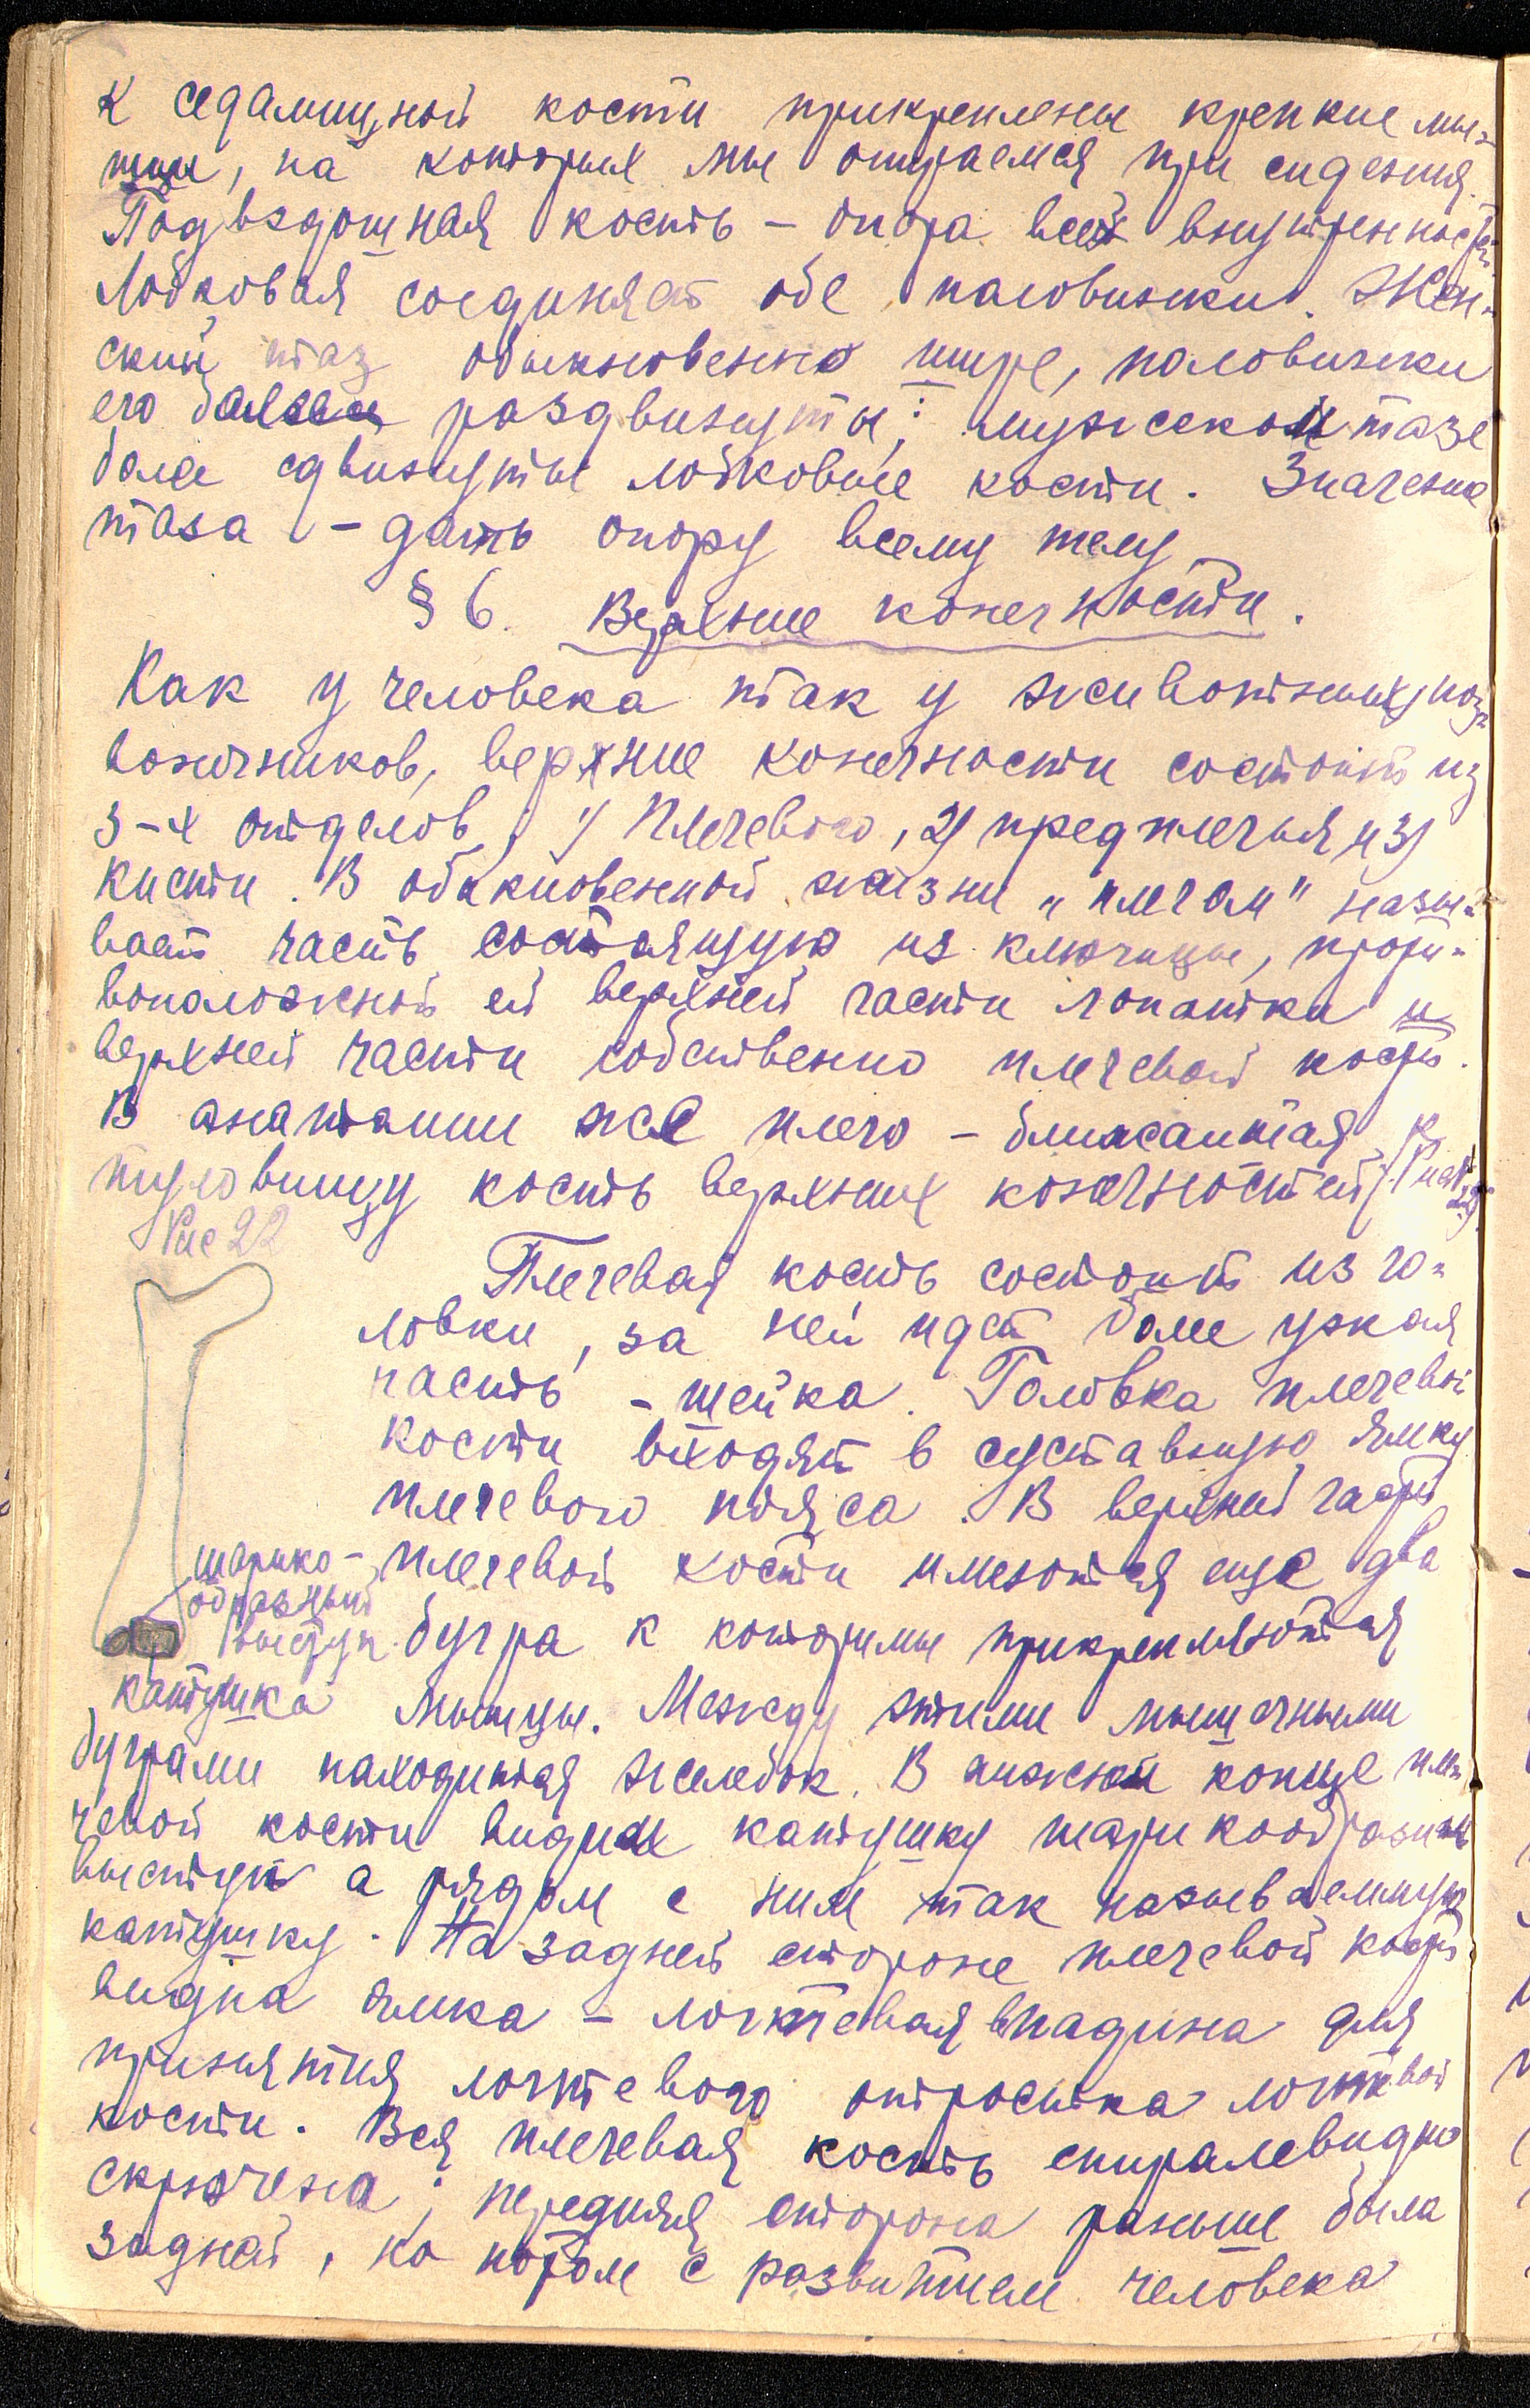 К седалищной кости прикреплены крепкие мы-
шцы, на которых мы опираемся при сидения.
Подвздошная кость – опора всех внутренностей.
Лобковая соединяет обе половинки. Жен-
ский таз обыкновенно шире, половинки
его более раздвинуты; мужском тазе
боле сдвинуты лобковые кости. Значение
таза – дать опору всему телу
§ 6. Верхние конечности.
Как у человека так у животных, поз-
воночников, верхние конечности состоит из
3-х отделов; 1) Плечевого, 2) предплечья и 3)
кисти. В обыкновенной жизни „плечом" назы-
вают часть состоящую из ключицы, проти-
воположной ей верхней части лопатки и
верхней части собственно плечевой кости.
В анатомии же плечо – ближайшая к
туловищу кость верхних конечностей
Рис 22
Плечевая кость состоит из го-
ловки, за ней идет боле узкая
часть – шейка. Головка плечевой
кости входят в суставную ямку
плечевого пояса. В верхней части
плечевой кости имеются еще два
бугра к которыми прикрепляются
мышцы. Между этими мышечными
шарико-
образный
выступ
катушка
буграми находится желобок. В нижнем конце пле-
чевой кости видим катушку шарикообразный
выступ а рядом с ним так называемую
катушку. На задней стороне плечевой кости
видна ямка – локтевая впадина для
принятия локтевого отростка локтевой
кости. Вся плечевая кость спиралевидно
скрючена; передняя сторона раньше была
задней, но потом с развитием человека